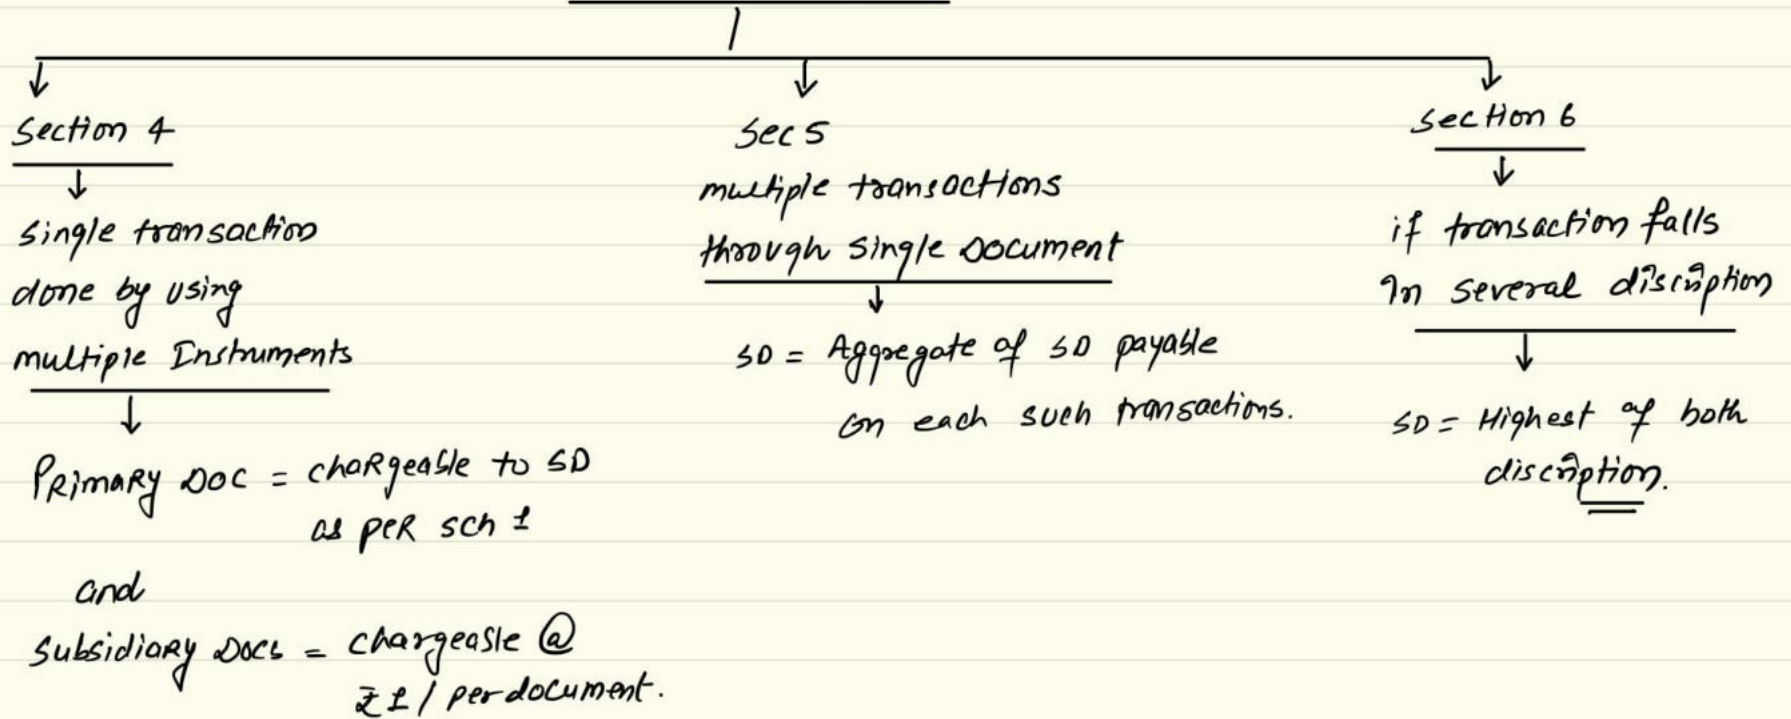 Section 4
single transaction
done by using
multiple Instruments
Primary Doc = chargeable to SD
as per sch 1
and
Subsidiary Docs = chargeable @
₹1 / per document.
Sec 5
multiple transactions
through single Document
SD = Aggregate of SD payable
on each such transactions.
Section 6
if transaction falls
In several discription
SD = Highest of both
discription.